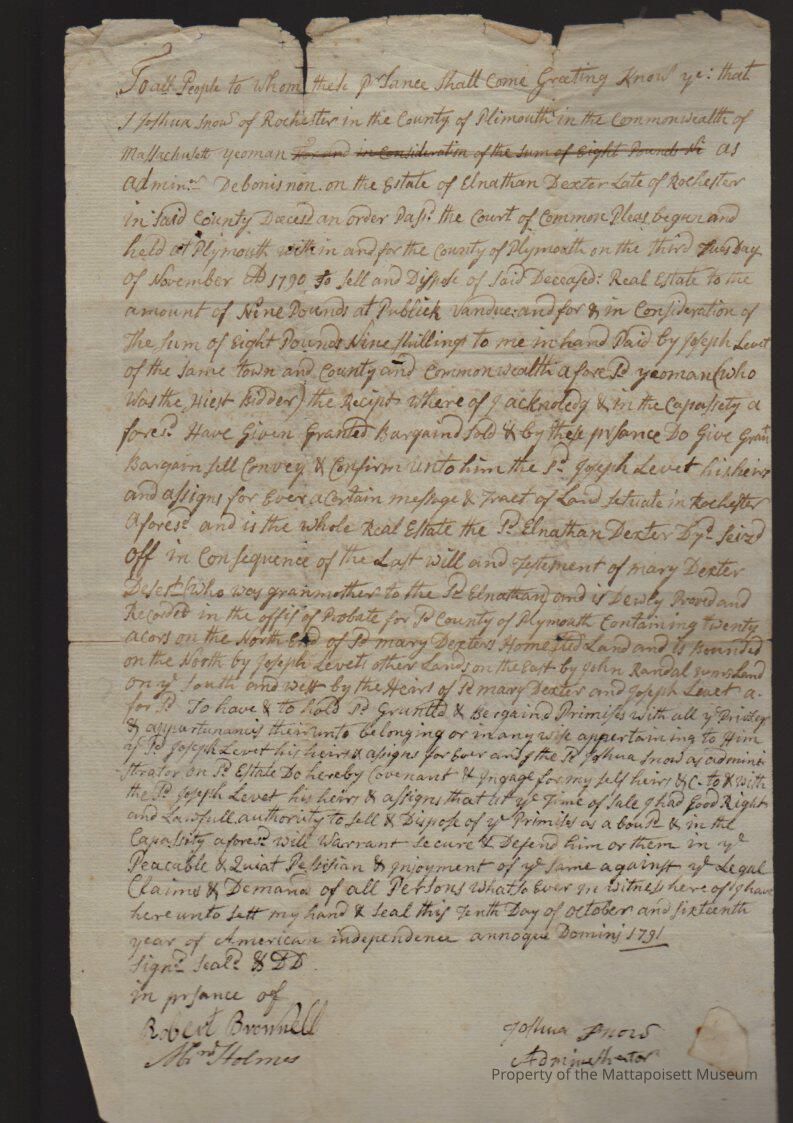 To all People to Whom these prsance Shall Come Greeting Know ye: that
I Joshua Snow of Rochester in the County of Plimouth in the Commonwealth of
Massachusett yeoman For and in Consideration of the Sum of Eight Pounds Ni as
Adminr Debonis non. on the Estate of Elnathan Dexter Late of Rochester
in Said County Decesd an order Past the Court of Common Pleas begun and
held at Plymouth with in and for the County of Plymouth on the third Tuesday
of November AD 1790 to Sell and Dispose of Said Deceased: Real Estate to the
amount of Nine Pounds at Publick Vandue: and for & in Consideration of
The Sum of Eight Pounds Nine Shillings to me in hand Paid by Joseph Levet
of the Same town and County and Commonwealth afore Sd yeoman (who
Was the Hiest Bidder) the Recipt where of I acknoledg & in the Capassety a
foresd Have Given Granted Bargaind Sold & by these prsance Do Give Grant
Bargain Sell Convey & Confirm unto him the Sd Joseph Levet his heirs
and assigns for Ever a Certain message & Tract of Land Setuate in Rochester
Aforesd and is the whole Real Estate the Sd Elnathan Dexter Dyd Seizd
off in Consequence of the Last Will and Testement of mary Dexter
Desest (who was granmother to the Sd Elnathan) and is Dewly Proved and
Recorded in the offis of Probate for Sd County of Plymouth Containing twenty
acors on the North End of Sd mary Dexters Homested Land and is Bounded
on the North by Joseph Levets other Lands on the East by John Randal Land
on ye South and West by the Heirs of Sd mary Dexter and Joseph Levet a-
for Sd To have & to hold Sd Granted & Bergaind Primises with all ye Privileg
& appurtenancis their unto belonging or in any wise appertaining to Him
ye Sd Joseph Levet his heirs & assigns for Ever and I the Sd Joshua Snow as admini
strator on Sd Estate Do hereby Covenant & Ingage for my self heirs &C. to & with
the Sd Joseph Levet his heirs & assigns that at ye Time of Sale I had Good Right
and Lawfull authority to Sell & Dispose of ye Primises as a bou Sd & in the
Capassity aforesd will Warrant Secure & Defend him or them in ye
Peacable & Quiat Pessisian & Injoyment of ye Same against ye Legal
Claims & Demand of all Persons Whatso Ever in Witness here of I have
here unto Sett my hand & Seal this Tenth Day of October and Sixteenth
year of American independence annoque Domini 1791
Signd Seald & DD
in prsance of
Robert Brownell
Holmes
Joshua Snow
Administrator
Property of the Mattapoisett Museum